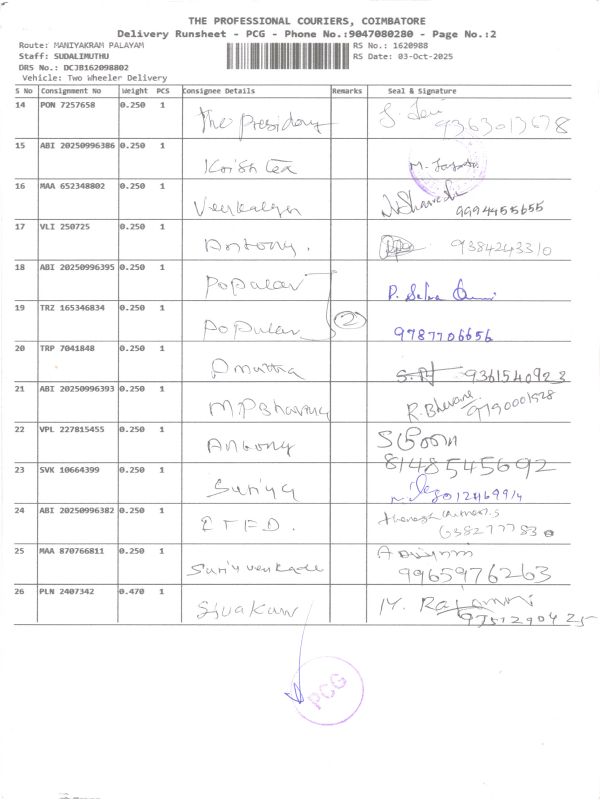 THE PROFESSIONAL COURIERS, COIMBATORE
Delivery Runsheet - PCG - Phone No.:9047080280 - Page No.:2
Route: MANIYAKRAM PALAYAM RS No.: 1620988
Staff: SUDALIMUTHU RS Date: 03-Oct-2025
DRS No.: DCJB162098802
Vehicle: Two Wheeler Delivery
S No Consignment No Weight PCS Consignee Details Remarks Seal & Signature
14 PON 7257658 0.250 1 The President 9363013678
15 ABI 20250996386 0.250 1 Krish Tea
16 MAA 652348802 0.250 1 9994455655
17 VLI 250725 0.250 1 Antony. 9384243310
18 ABI 20250996395 0.250 1 Popular P. Selva
19 TRZ 165346834 0.250 1 Popular 2 9787706656
20 TRP 7041848 0.250 1 9361540923
21 ABI 20250996393 0.250 1 R. Bhavani
22 VPL 227815455 0.250 1 Antony 8148545692
23 SVK 10664399 0.250 1 Suriya
24 ABI 20250996382 0.250 1
25 MAA 870766811 0.250 1 9965976263
26 PLN 2407342 0.470 1 Sivakum
PCG